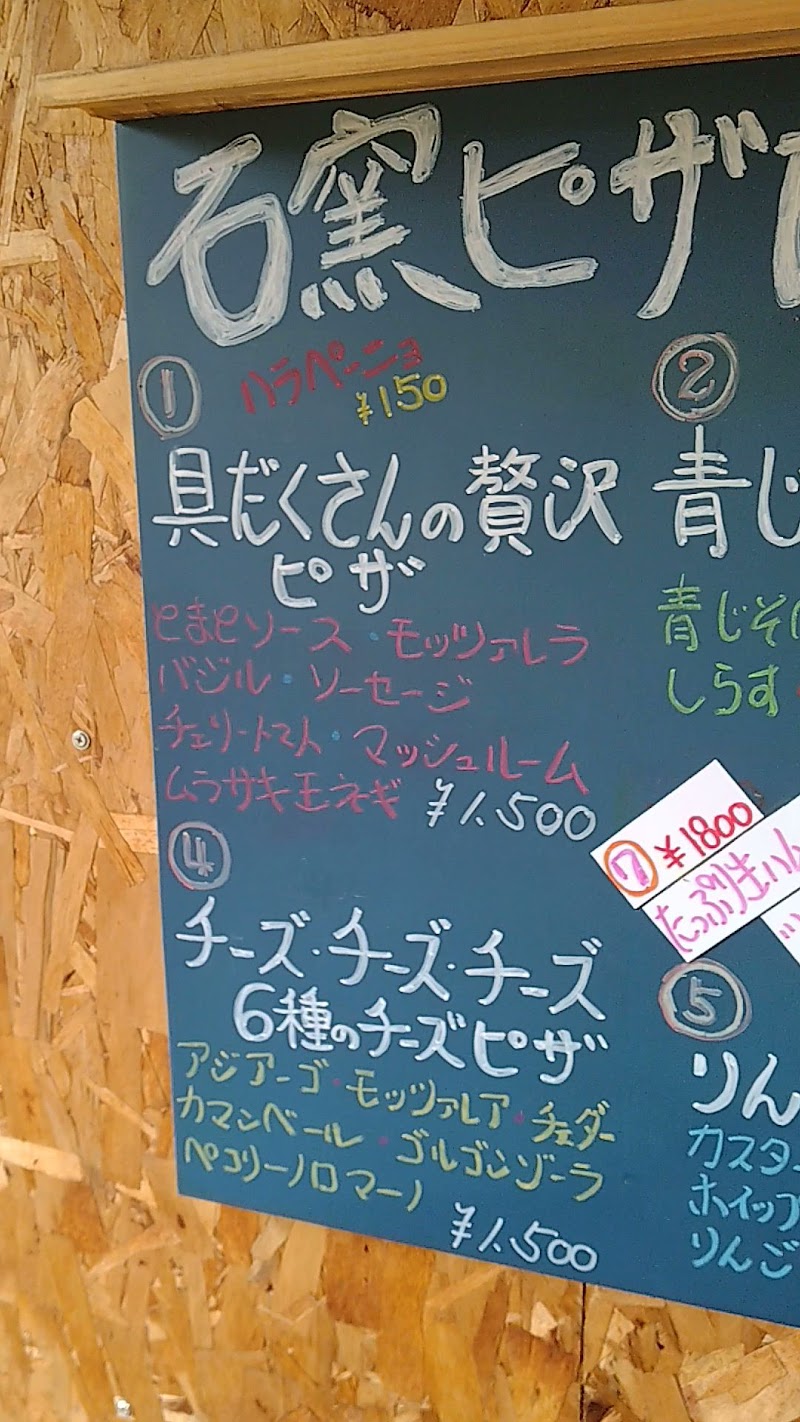 石窯ピザ
①
ハラペーニョ
¥150
具だくさんの贅沢
ピザ
とまとソース・モッツァレラ
バジル・ソーセージ
チェリートマト・マッシュルーム
ムラサキ玉ネギ ¥1.500
②
青じ
青じそ
しらす
④
チーズ・チーズ・チーズ
6種のチーズピザ
アジアーゴ・モッツァレア・チェダー
カマンベール・ゴルゴンゾーラ
ペコリーノロマーノ
¥1.500
⑦ ¥1800
たっぷり生ハ
⑤
りん
カスタ
ホイップ
りんご